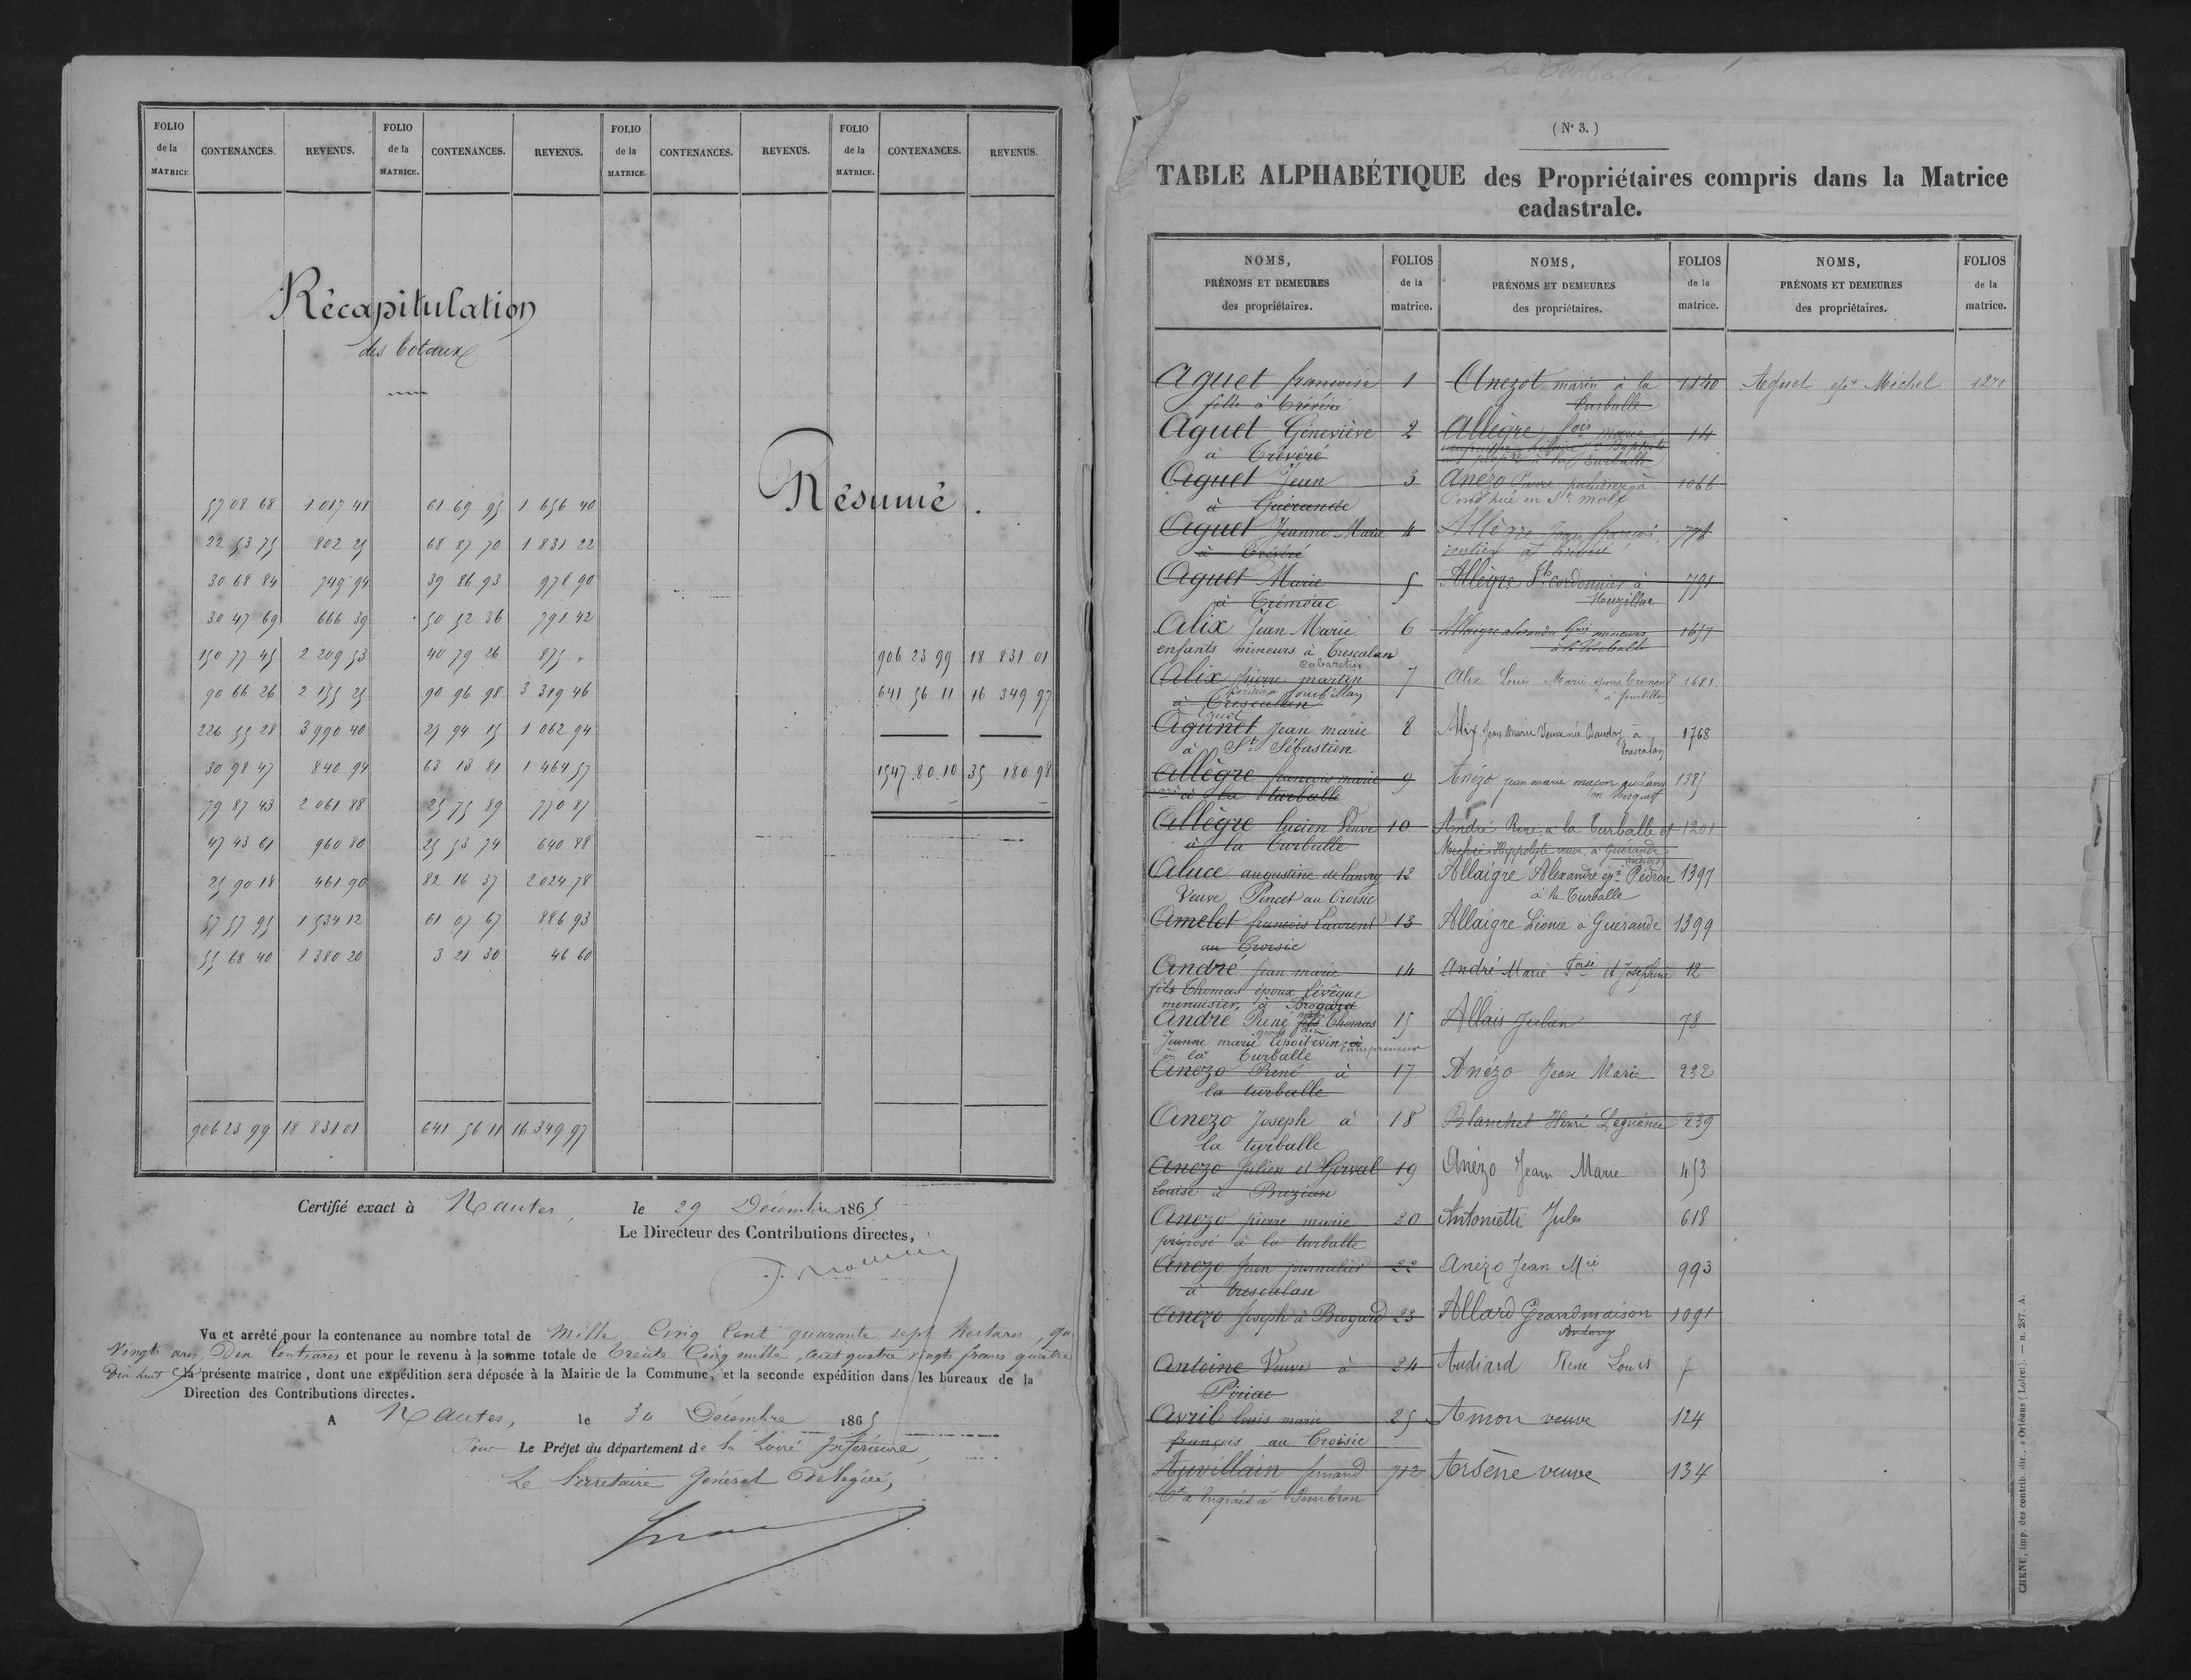 FOLIO de la MATRICE. CONTENANCES. REVENUS. FOLIO de la MATRICE. CONTENANCES. REVENUS. FOLIO de la MATRICE. CONTENANCES. REVENUS. FOLIO de la MATRICE. CONTENANCES. REVENUS.
Récapitulation
des totaux
57 08 68 1 017 41 61 69 95 1 656 40
22 53 75 802 25 68 87 70 1 831 22
30 68 84 749 94 39 86 93 978 90
30 47 69 666 39 50 52 36 791 42
150 77 45 2 209 53 40 79 26 875 "
90 66 26 2 155 25 90 96 98 3 319 46
226 55 28 3 990 40 25 94 15 1 062 94
30 98 47 840 94 63 13 81 1 464 57
79 87 43 2 061 88 25 75 89 770 87
47 43 61 960 80 25 53 74 640 88
25 90 18 461 90 82 16 37 2 024 78
57 57 95 1 534 12 61 07 67 886 93
55 68 40 1 380 20 3 21 30 46 60
906 23 99 18 831 01 641 56 11 16 349 97
Résumé.
906 23 99 18 831 01
641 56 11 16 349 97
1547.80.10 35 180 98
Certifié exact à Nantes, le 29 Décembre 1865
Le Directeur des Contributions directes,
Vu et arrêté pour la contenance au nombre total de Mille Cinq Cent quarante sept hectares,
Vingts ares, Dix Centiares et pour le revenu à la somme totale de Trente Cinq mille, cent quatre vingts francs quatre
Dix huit Cx la présente matrice, dont une expédition sera déposée à la Mairie de la Commune, et la seconde expédition dans les bureaux de la
Direction des Contributions directes.
A Nantes, le 30 Décembre 1865
Pour Le Préfet du département de la Loire Inférieure,
Le Secrétaire Général Délégué,
La Turballe
(No 3.)
TABLE ALPHABÉTIQUE des Propriétaires compris dans la Matrice
cadastrale.
NOMS, PRÉNOMS ET DEMEURES des propriétaires. FOLIOS de la matrice. NOMS, PRÉNOMS ET DEMEURES des propriétaires. FOLIOS de la matrice. NOMS, PRÉNOMS ET DEMEURES des propriétaires. FOLIOS de la matrice.
Aguet françoise 1
fille à Trévéré
Aguet Géneviève 2
à Trévéré
Aguet Jean 3
à Guérande
Aguet Jeanne Marie 4
à Trévéré
Aguet Marie 5
à Trémeac
Alix Jean Marie 6
enfants mineurs à Trescalan
Cabaretier
Alix pierre martin 7
Jourbillan
à Trescallan
Agunet Jean marie 8
à St Sébastien
Allègre francois marie 9
à la turballe
Allègre lucien Veuve 10
à la turballe
Aluce augustine de lanvry 12
Veuve Pincet au Croisic
Amelot francois Laurent 13
au Croisic
André jean marie 14
fils Thomas époux Lévêque
menuisier, à Brogard
André René fils Thomas 15
Jeanne marie Lepoitevin
à la Turballe Entrepreneur
Anezo René à 17
la turballe
Anezo Joseph à 18
la turballe
Anezo Julien et Gerval 19
Louise à Brezian
Anezo pierre marie 20
préposé à la turballe
Anezo Jean journalier 22
à trescalan
Anezo Joseph à Brogard 23
Antoine Veuve à 24
Piriac
Avril louis marie 25
françois au Croisic
Aguvillain fernand 712
Md d'Engrais à Penbron
Anezot marin à la 1140
Turballe
Allègre fois marie 14
Anézo Pierre paludier à 1066
Pond hué en St molf
Allègre Jean francois 778
rentier à Trévéré
Allègre Jh cordonnier à 791
Muzillac
Allaigre alexandre Gdes mineurs 1657
à la Turballe
Alix Louis Marie époux 1681
à jourbillan
Alix Jean Marie Veuve née Baudry à 1768
Trescalan
Anézo jean marie maçon 1385
en Mesquer
André René, à la Turballe et 1201
Hippolyte veuve à Guérande
Allaigre Alexandre épx Pédron 1397
à la Turballe
Allaigre Léonie à Guérande 1399
André Marie Foise et Joséphine 12
Allais Julien 78
Anézo Jean Marie 232
Blanchet Henri 239
Anézo Jean Marie 453
Antonietti Jules 618
Anézo Jean Mie 993
Allard Grandmaison 1091
Antony
Audiard René Louis 7
Amon veuve 124
Arsène veuve 134
Aguet epx Michel 1271
CHENU, imp. des contrib. dir., à Orléans (Loiret). — n. 287. A.